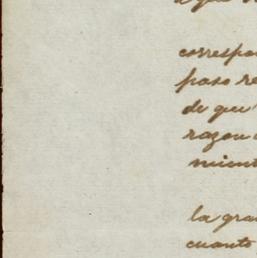 correspo
paso re
de que
razon
mient
la gra
cuanto